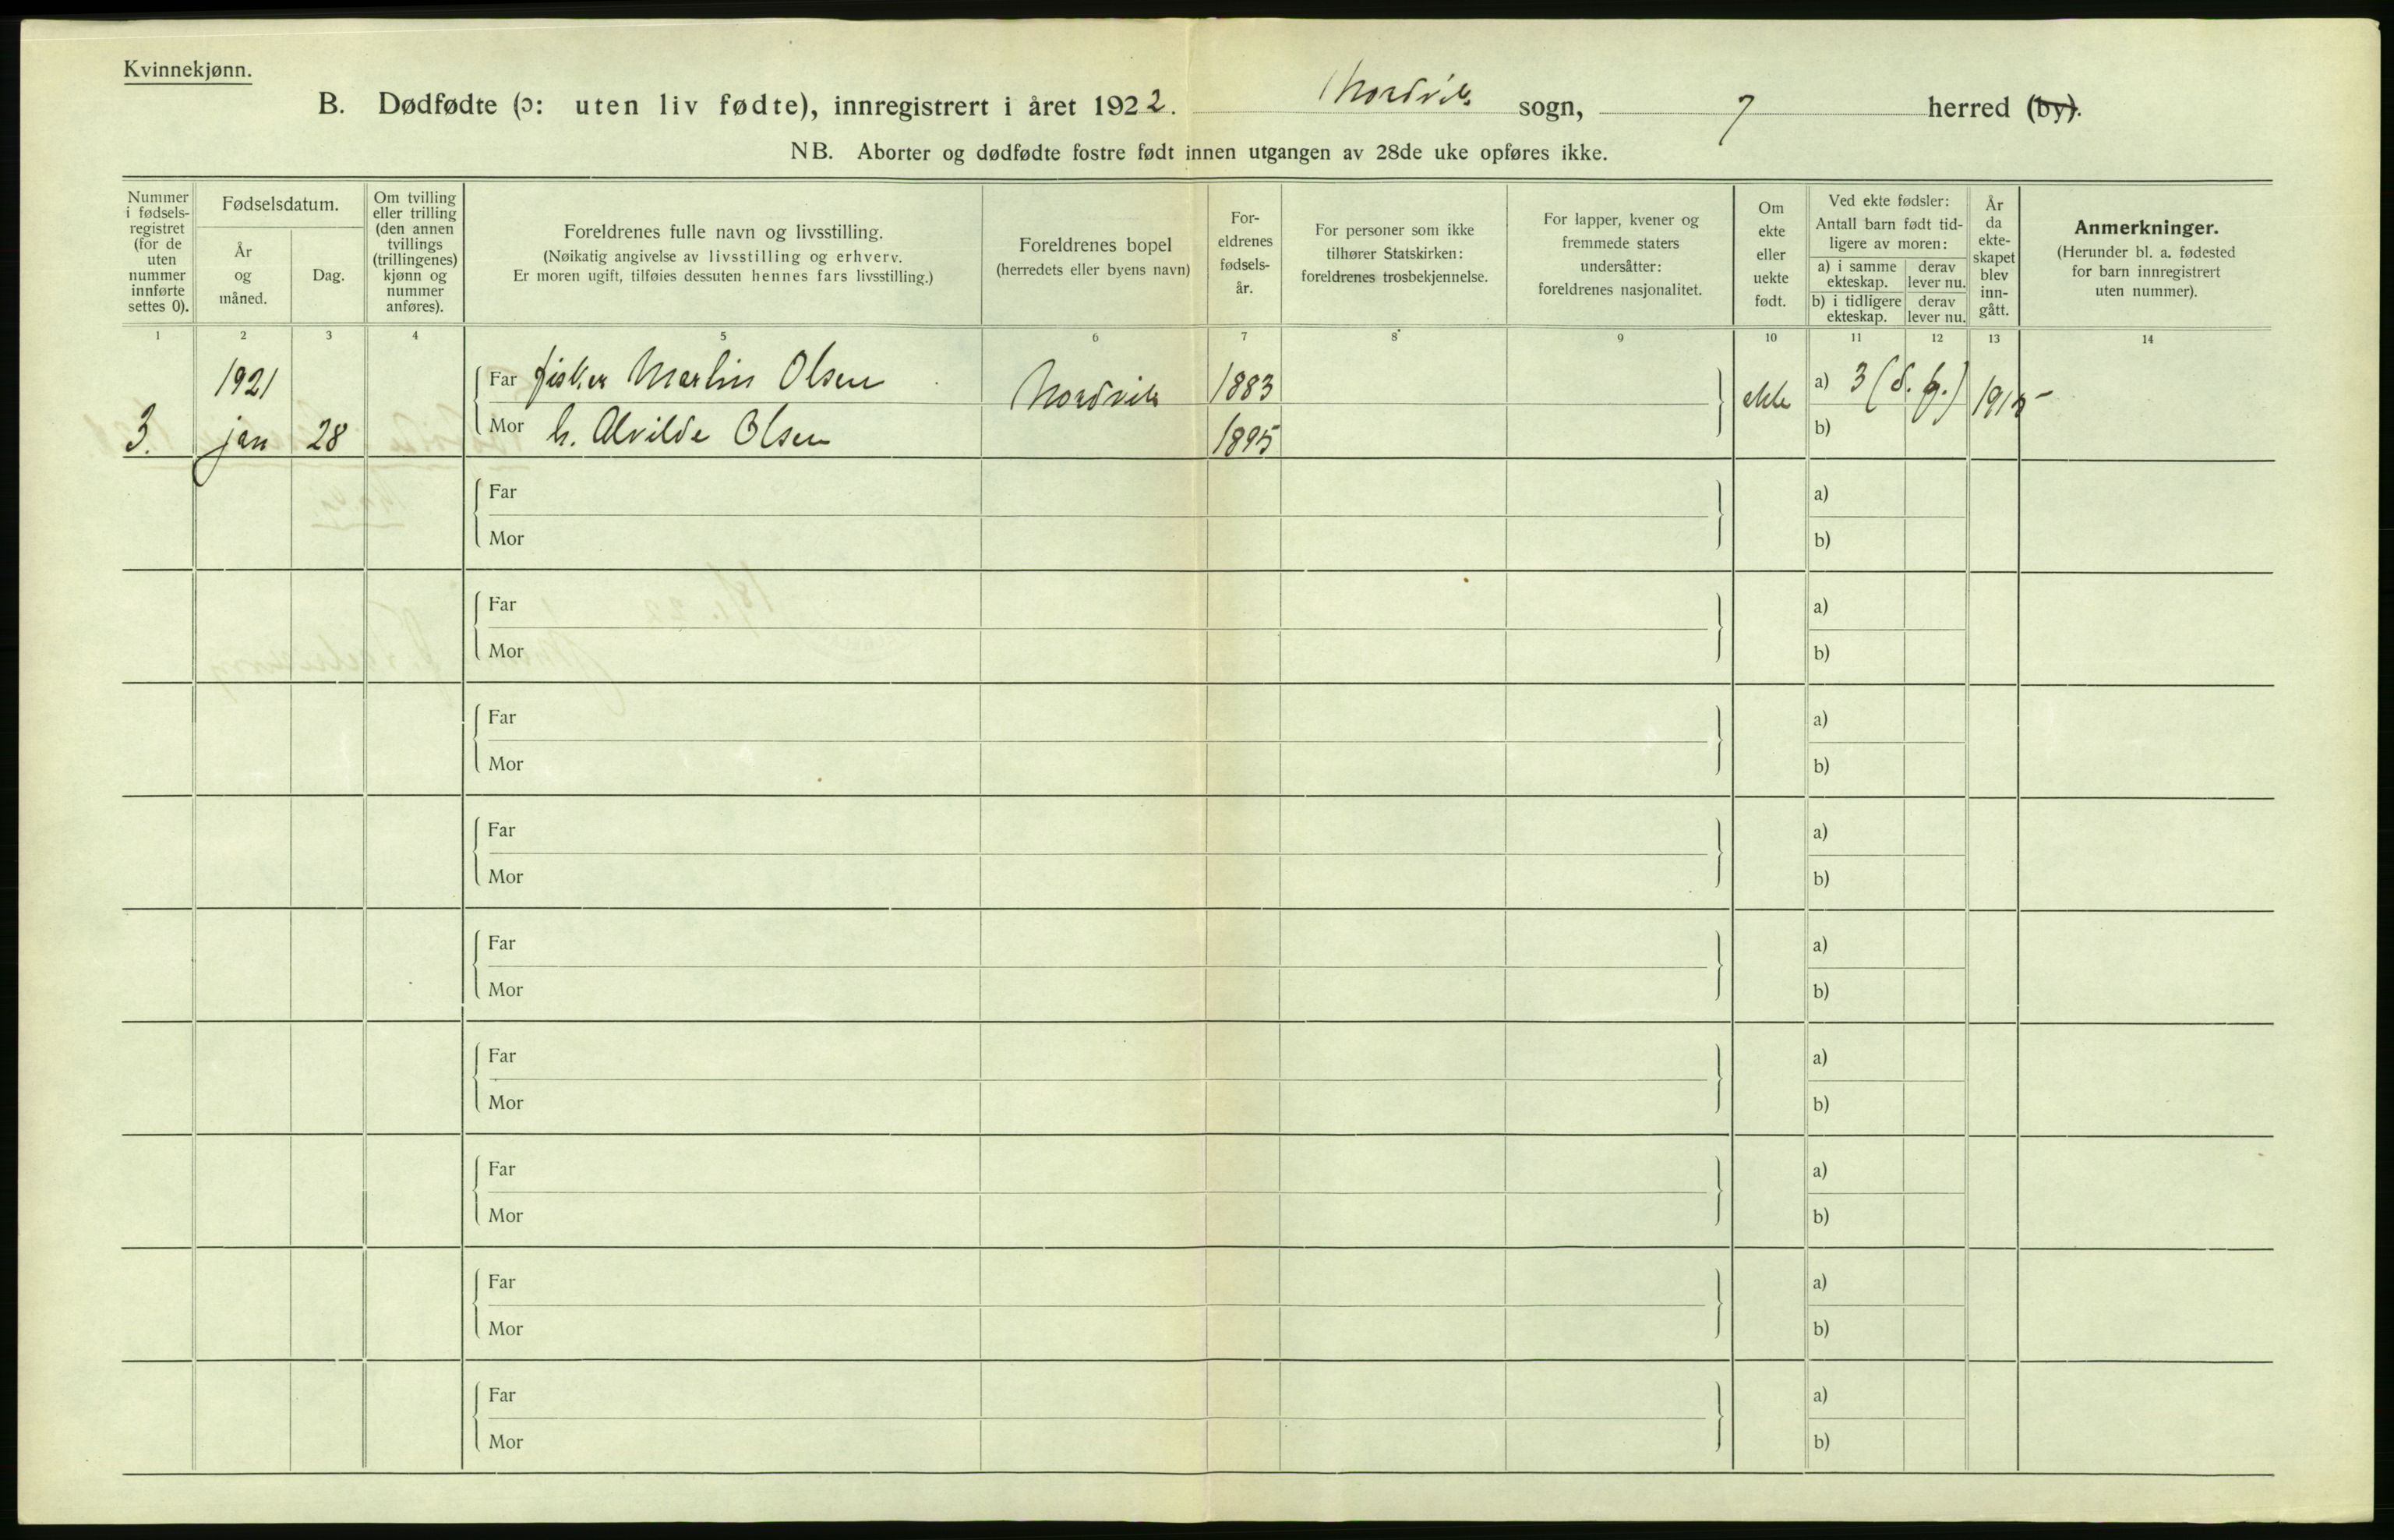 Kvinnekjønn.
B. Dødfødte (ɔ: uten liv fødte), innregistrert i året 1922. Nordvik sogn, " herred (by).
NB. Aborter og dødfødte fostre født innen utgangen av 28de uke opføres ikke.
Nummer
i fødsels-
registret
(for de
uten
nummer
innførte
settes 0).
Fødselsdatum.
År
og
måned.
Dag.
Om tvilling
eller trilling
(den annen
tvillings
(trillingenes)
kjønn og
nummer
anføres).
Foreldrenes fulle navn og livsstilling.
(Nøikatig angivelse av livsstilling og erhverv.
Er moren ugift, tilføies dessuten hennes fars livsstilling.)
Foreldrenes bopel
(herredets eller byens navn)
For-
eldrenes
fødsels-
år.
For personer som ikke
tilhører Statskirken:
foreldrenes trosbekjennelse.
For lapper, kvener og
fremmede staters
undersåtter:
foreldrenes nasjonalitet.
Om
ekte
eller
uekte
født.
Ved ekte fødsler:
Antall barn født tid-
ligere av moren:
a) i samme
ekteskap.
derav
lever nu.
b) i tidligere
ekteskap.
derav
lever nu.
År
da
ekte-
skapet
blev
inn-
gått.
Anmerkninger.
(Herunder bl. a. fødested
for barn innregistrert
uten nummer).
1 2 3 4 5 6 7 8 9 10 11 12 13 14
1921
3. jan 28
Far fisker Martin Olsen Nordvik 1883 ekte a) 3 1915
Mor h. Alvilde Olsen 1895 b)
Far a)
Mor b)
Far a)
Mor b)
Far a)
Mor b)
Far a)
Mor b)
Far a)
Mor b)
Far a)
Mor b)
Far a)
Mor b)
Far a)
Mor b)
Far a)
Mor b)